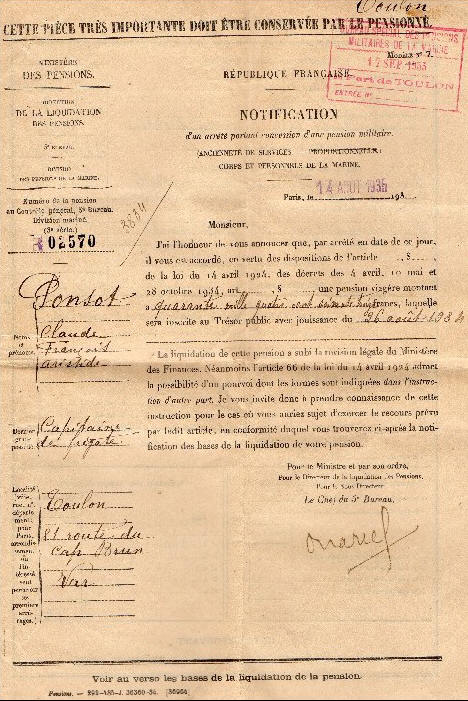 Toulon
CETTE PIÈCE TRÈS IMPORTANTE DOIT ÊTRE CONSERVÉE PAR LE PENSIONNÉ.
SPÉCIAL DES PENSIONS
MILITAIRES DE LA MARINE
SEP 1935
Port de TOULON
ENTRÉE N°
Modèle N° 7.
MINISTÈRE
DES PENSIONS.
DIRECTION
DE LA LIQUIDATION
DES PENSIONS.
5e BUREAU.
PENSIONS
DES PERSONNELS DE LA MARINE.
Numéro de la pension
au Contrôle général, 5e Bureau.
Division marine.
(3e série.)
02570
RÉPUBLIQUE FRANÇAISE
NOTIFICATION
d'un arrêté portant concession d'une pension militaire.
(ANCIENNETÉ DE SERVICES PROPORTIONNELLE)
CORPS ET PERSONNELS DE LA MARINE.
Paris, le 14 AOUT 1935 193
Monsieur,
J'ai l'honneur de vous annoncer que, par arrêté en date de ce jour,
il vous est accordé, en vertu des dispositions de l'article , §
de la loi du 14 avril 1924, des décrets des 4 avril, 10 mai et
28 octobre 1934, art. , § une pension viagère montant
à quarante mille quatre cent francs, laquelle
sera inscrite au Trésor public avec jouissance du 26 août 1934
La liquidation de cette pension a subi la révision légale du Ministère
des Finances. Néanmoins l'article 66 de la loi du 14 avril 1924 admet
la possibilité d'un pourvoi dont les formes sont indiquées dans l'instruc-
tion d'autre part. Je vous invite donc à prendre connaissance de cette
instruction pour le cas où vous auriez sujet d'exercer le recours prévu
par ledit article, en conformité duquel vous trouverez ci-après la noti-
fication des bases de la liquidation de votre pension.
Pour le Ministre et par son ordre,
Pour le Directeur de la liquidation des Pensions,
Pour le Sous-Directeur
Le Chef du 5e Bureau,
Noms
et
prénoms.
Ponsot
Claude
François
Aristide
Dernier
grade
Capitaine
de frégate
Localité
Toulon
81 route du
Cap Brun
Var
Voir au verso les bases de la liquidation de la pension.
Pensions. — 291-485-J. 36360-34. [36964]